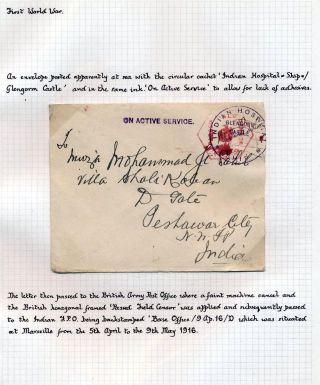 First World War.
An envelope posted apparently at sea with the circular cachet 'Indian Hospital Ship/
Glengorm Castle' and in the same ink 'On Active Service' to allow for lack of adhesives.
ON ACTIVE SERVICE.
INDIAN HOSPITAL
GLENGORM
CASTLE
To
Mirza Mohammad
Villa
D Gate
Peshawar City
India
The letter then passed to the British Army Post Office where a faint machine cancel and
the British hexagonal framed 'Passed Field Censor' was applied and subsequently passed
to the Indian F.P.O. being backstamped 'Base Office/9 Ap.16/D' which was situated
at Marseille from the 5th April to the 9th May 1916.